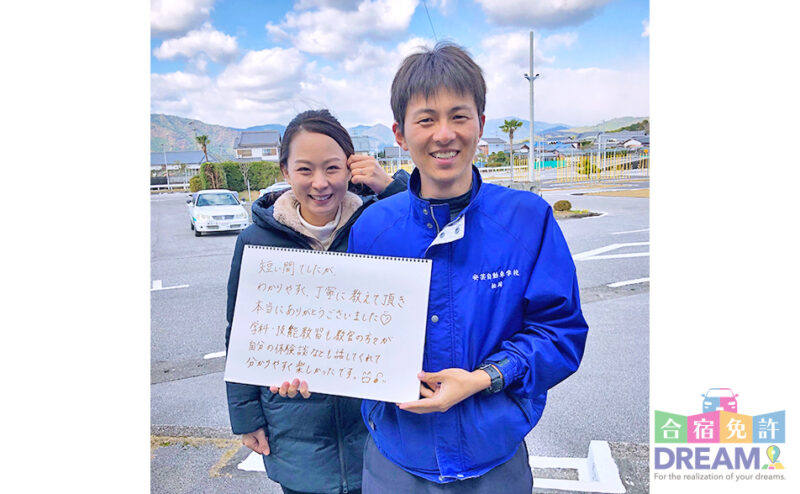 短い間でしたが、
わかりやすく、丁寧に教えて頂き
本当にありがとうございました♡
学科・技能教習も教官の方々が
自分の体験談なども話してくれて
分かりやすく楽しかったです。
安芸自動車学校
合宿免許
DREAM!
For the realization of your dreams.